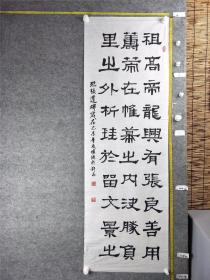 祖高帝龍興有張良善用
籌策在帷幕之內決勝負
里之外析珪於留文景之